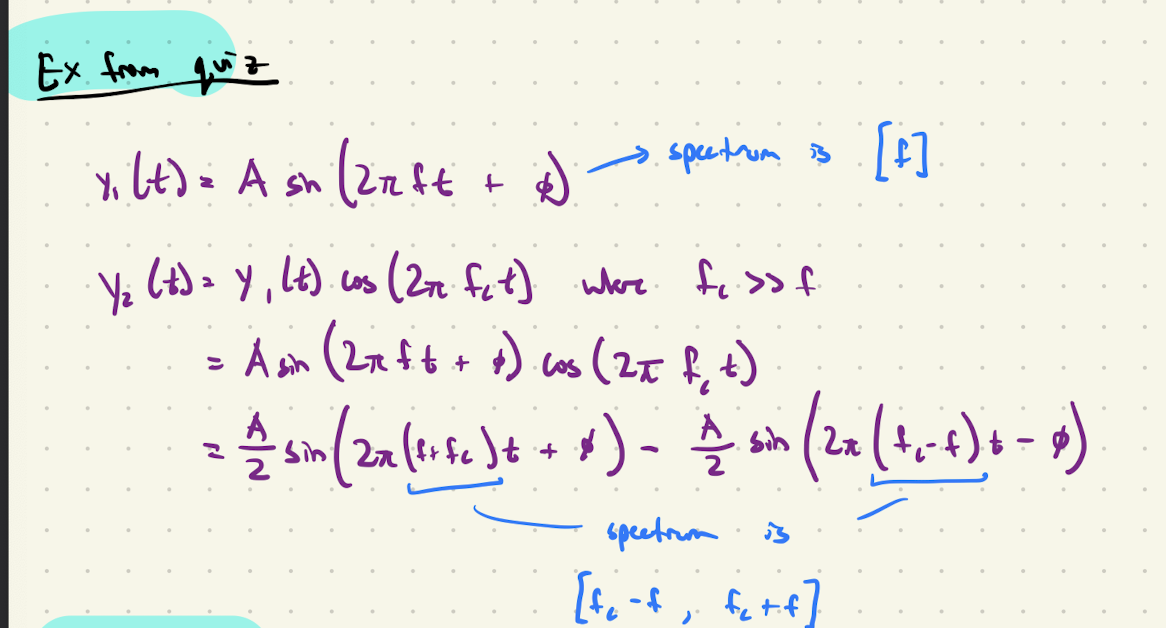 Ex from quiz
y₁(t) = A sin(2π f t + ϕ) → spectrum is [f]
y₂(t) = y₁(t) cos(2π f_c t) where f_c >> f
= A sin(2π f t + ϕ) cos(2π f_c t)
= A/2 sin(2π(f+f_c)t + ϕ) - A/2 sin(2π(f_c-f)t - ϕ)
spectrum is
[f_c -f , f_c +f]